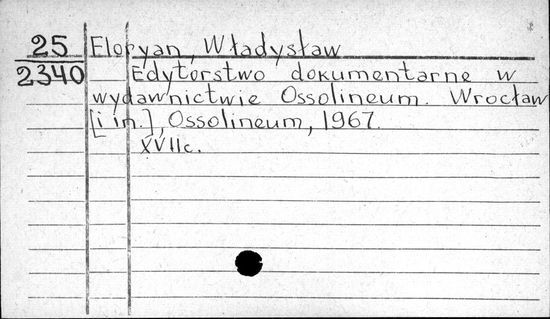 25
2340
Floryan, Władysław
Edytorstwo dokumentarne w
wydawnictwie Ossolineum. Wrocław
[i in.], Ossolineum, 1967.
XVIIc.